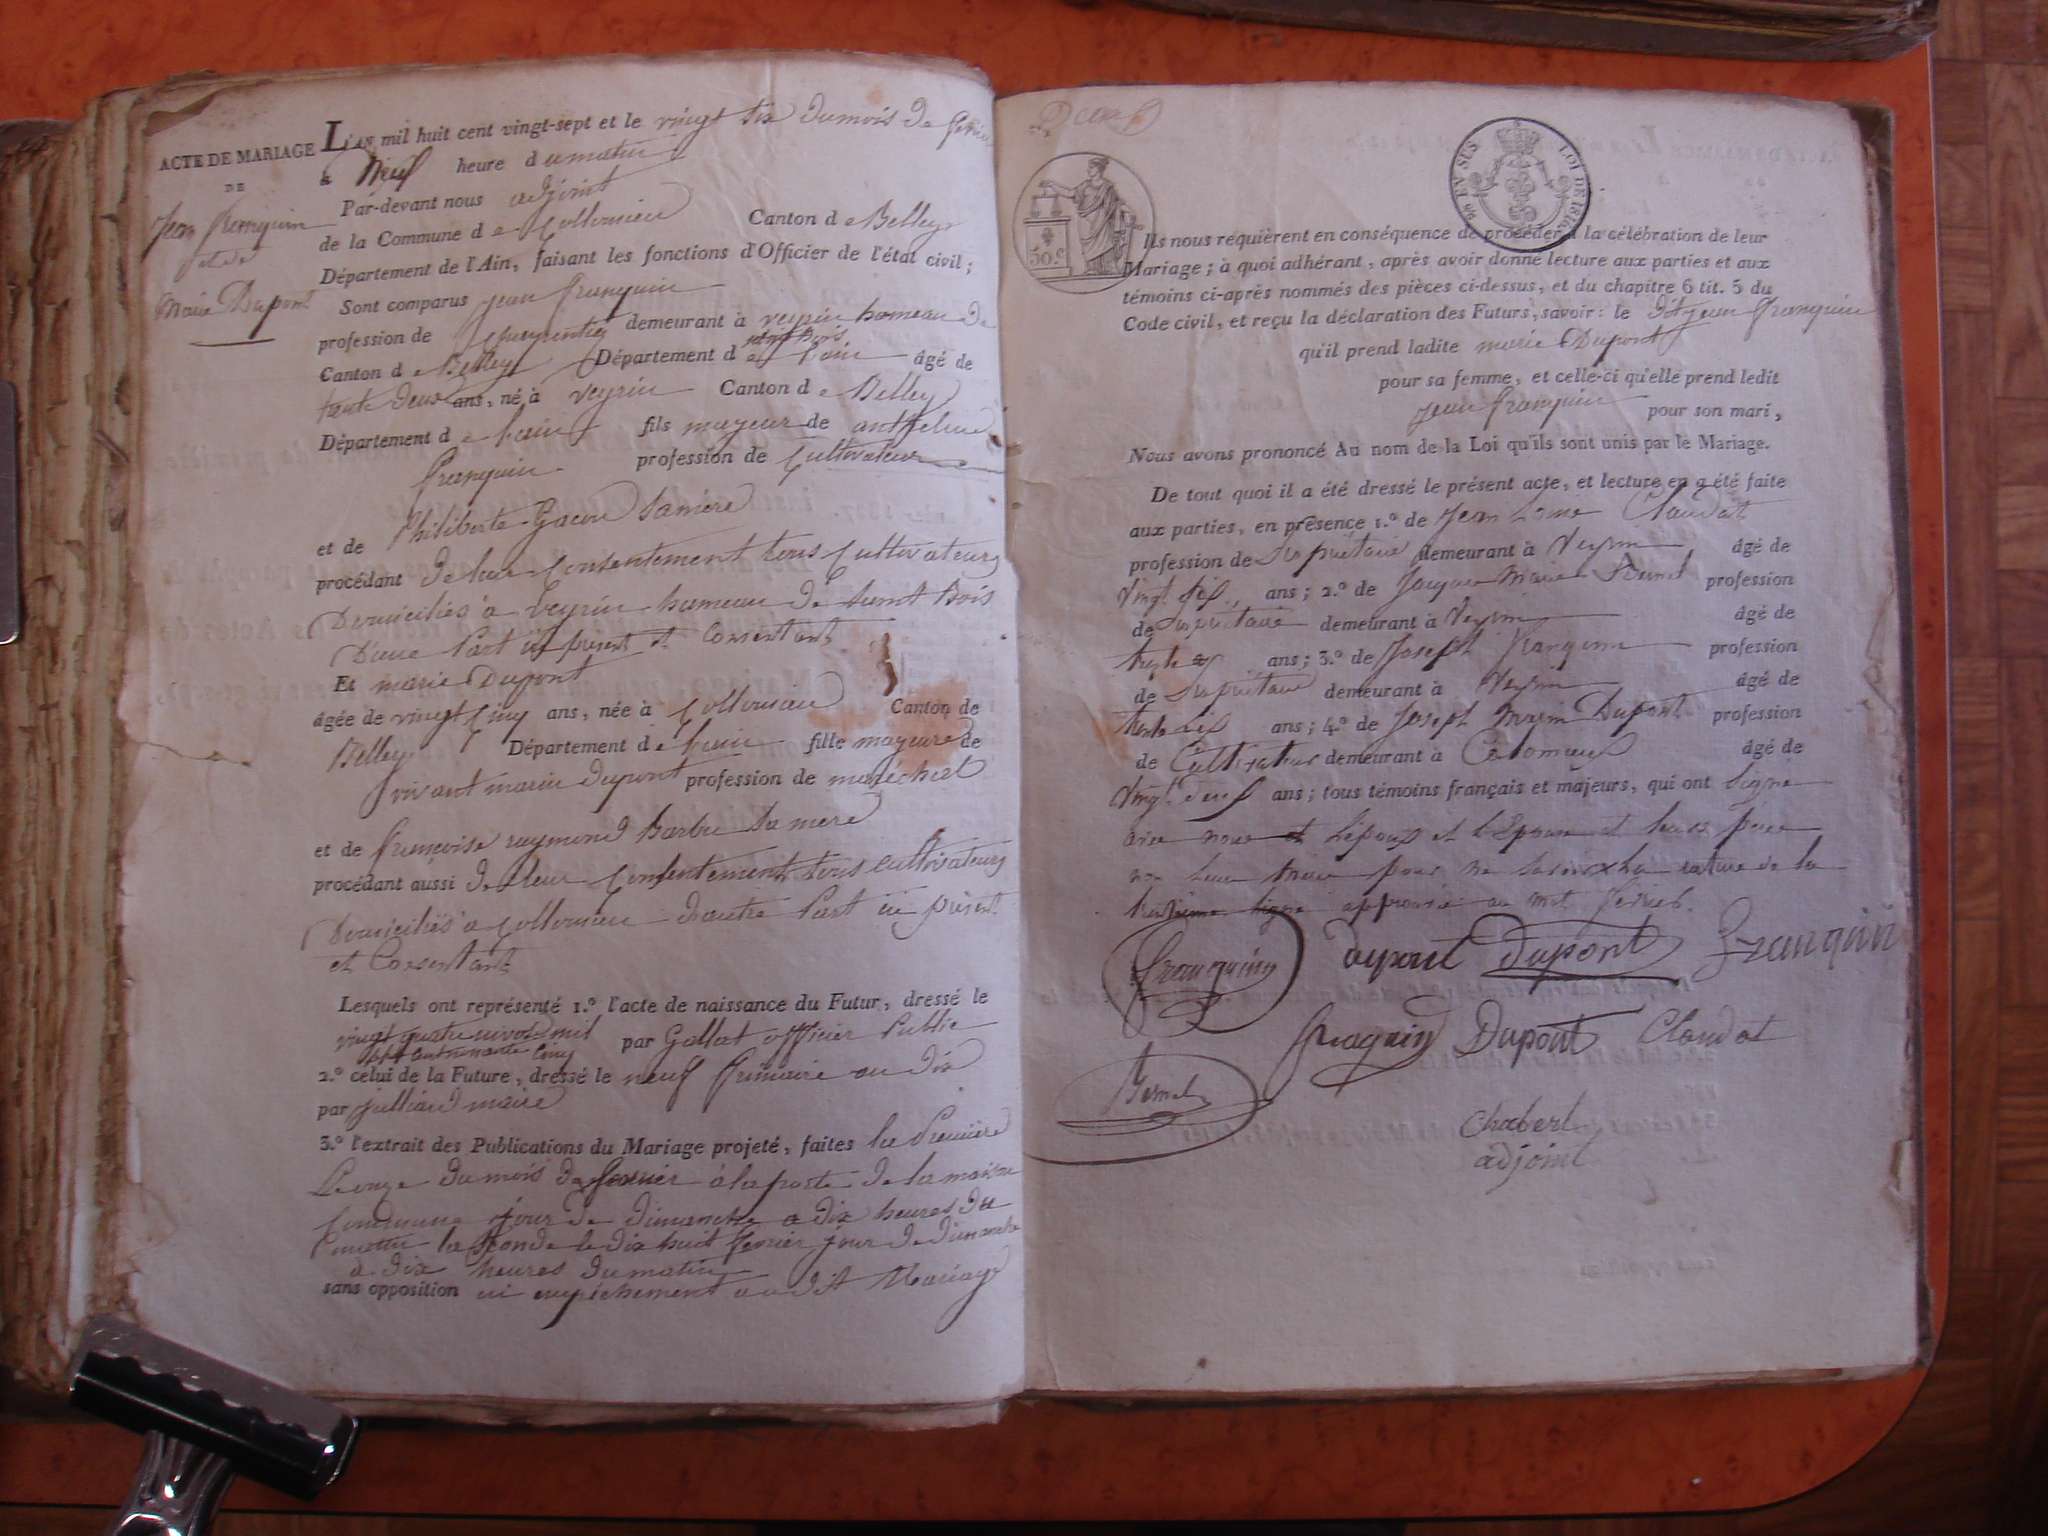 ACTE DE MARIAGE
DE
Jean franquin
et de
Marie Dupont
L'AN mil huit cent vingt-sept et le vingt six du mois de fevrier
à Neuf heure du matin
Par-devant nous adjoint
de la Commune de Collomieu Canton de Belley
Département de l'Ain, faisant les fonctions d'Officier de l'état civil;
Sont comparus jean franquin
profession de charpentier demeurant à veyrin hameau de
saint Bois
Canton de Belley Département de l'ain âgé de
trente deux ans, né à veyrin Canton de Belley
Département de l'ain fils mayeur de anthelme
franquin profession de Cultivateur
et de Philiberte Gacon sa mère
procédant de leur Consentement tous Cultivateurs
Domiciliés à veyrin hameau de saint Bois
D'une Part ici présent et Consentant
Et marie Dupont
âgée de vingt Cinq ans, née à Collomieu Canton de
Belley Département de l'ain fille mayeure de
vivant marin dupont profession de maréchal
et de françoise raymond Barbe sa mere
procédant aussi de leur Consentement tous cultivateurs
Domiciliés à Collomieu d'autre Part ici présent
et Consentant
Lesquels ont représenté 1.º l'acte de naissance du Futur, dressé le
vingt quatre nivose mil par Gallat officier Public
sept cent nonante Cinq
2.º celui de la Future, dressé le neuf frimaire an dix
par julliand maire
3.º l'extrait des Publications du Mariage projeté, faites la Premiere
Le onze du mois de fevrier à la porte de la maison
Commune jour de dimanche a dix heures du
matin la seconde le dix huit fevrier jour de dimanche
à dix heures du matin
sans opposition ni empêchement au dit Mariage
50 C
LOI DE 1816
Ils nous requièrent en conséquence de procéder à la célébration de leur
Mariage; à quoi adhérant, après avoir donné lecture aux parties et aux
témoins ci-après nommés des pièces ci-dessus, et du chapitre 6 tit. 5 du
Code civil, et reçu la déclaration des Futurs, savoir: le dit jean franquin
qu'il prend ladite marie Dupont
pour sa femme, et celle-ci qu'elle prend ledit
jean franquin pour son mari,
Nous avons prononcé Au nom de la Loi qu'ils sont unis par le Mariage.
De tout quoi il a été dressé le présent acte, et lecture en a été faite
aux parties, en présence 1.º de Jean Claudat
profession de Propriétaire demeurant à Veyrin âgé de
Vingt six ans; 2.º de Jacques Marie profession
de Propriétaire demeurant à Veyrin âgé de
trente ans; 3.º de Joseph franquin profession
de Propriétaire demeurant à Veyrin âgé de
trente six ans; 4.º de Joseph Marin Dupont profession
de Cultivateur demeurant à Colomieux âgé de
Vingt neuf ans; tous témoins français et majeurs, qui ont signé
avec nous et l'époux et l'Epouse et leurs père
non leur mère pour ne savoir la rature de la
troisieme ligne approuvée au mot fevrier.
franquin dupont Dupont Franquin
franquin Dupont Claudat
Chabert
adjoint